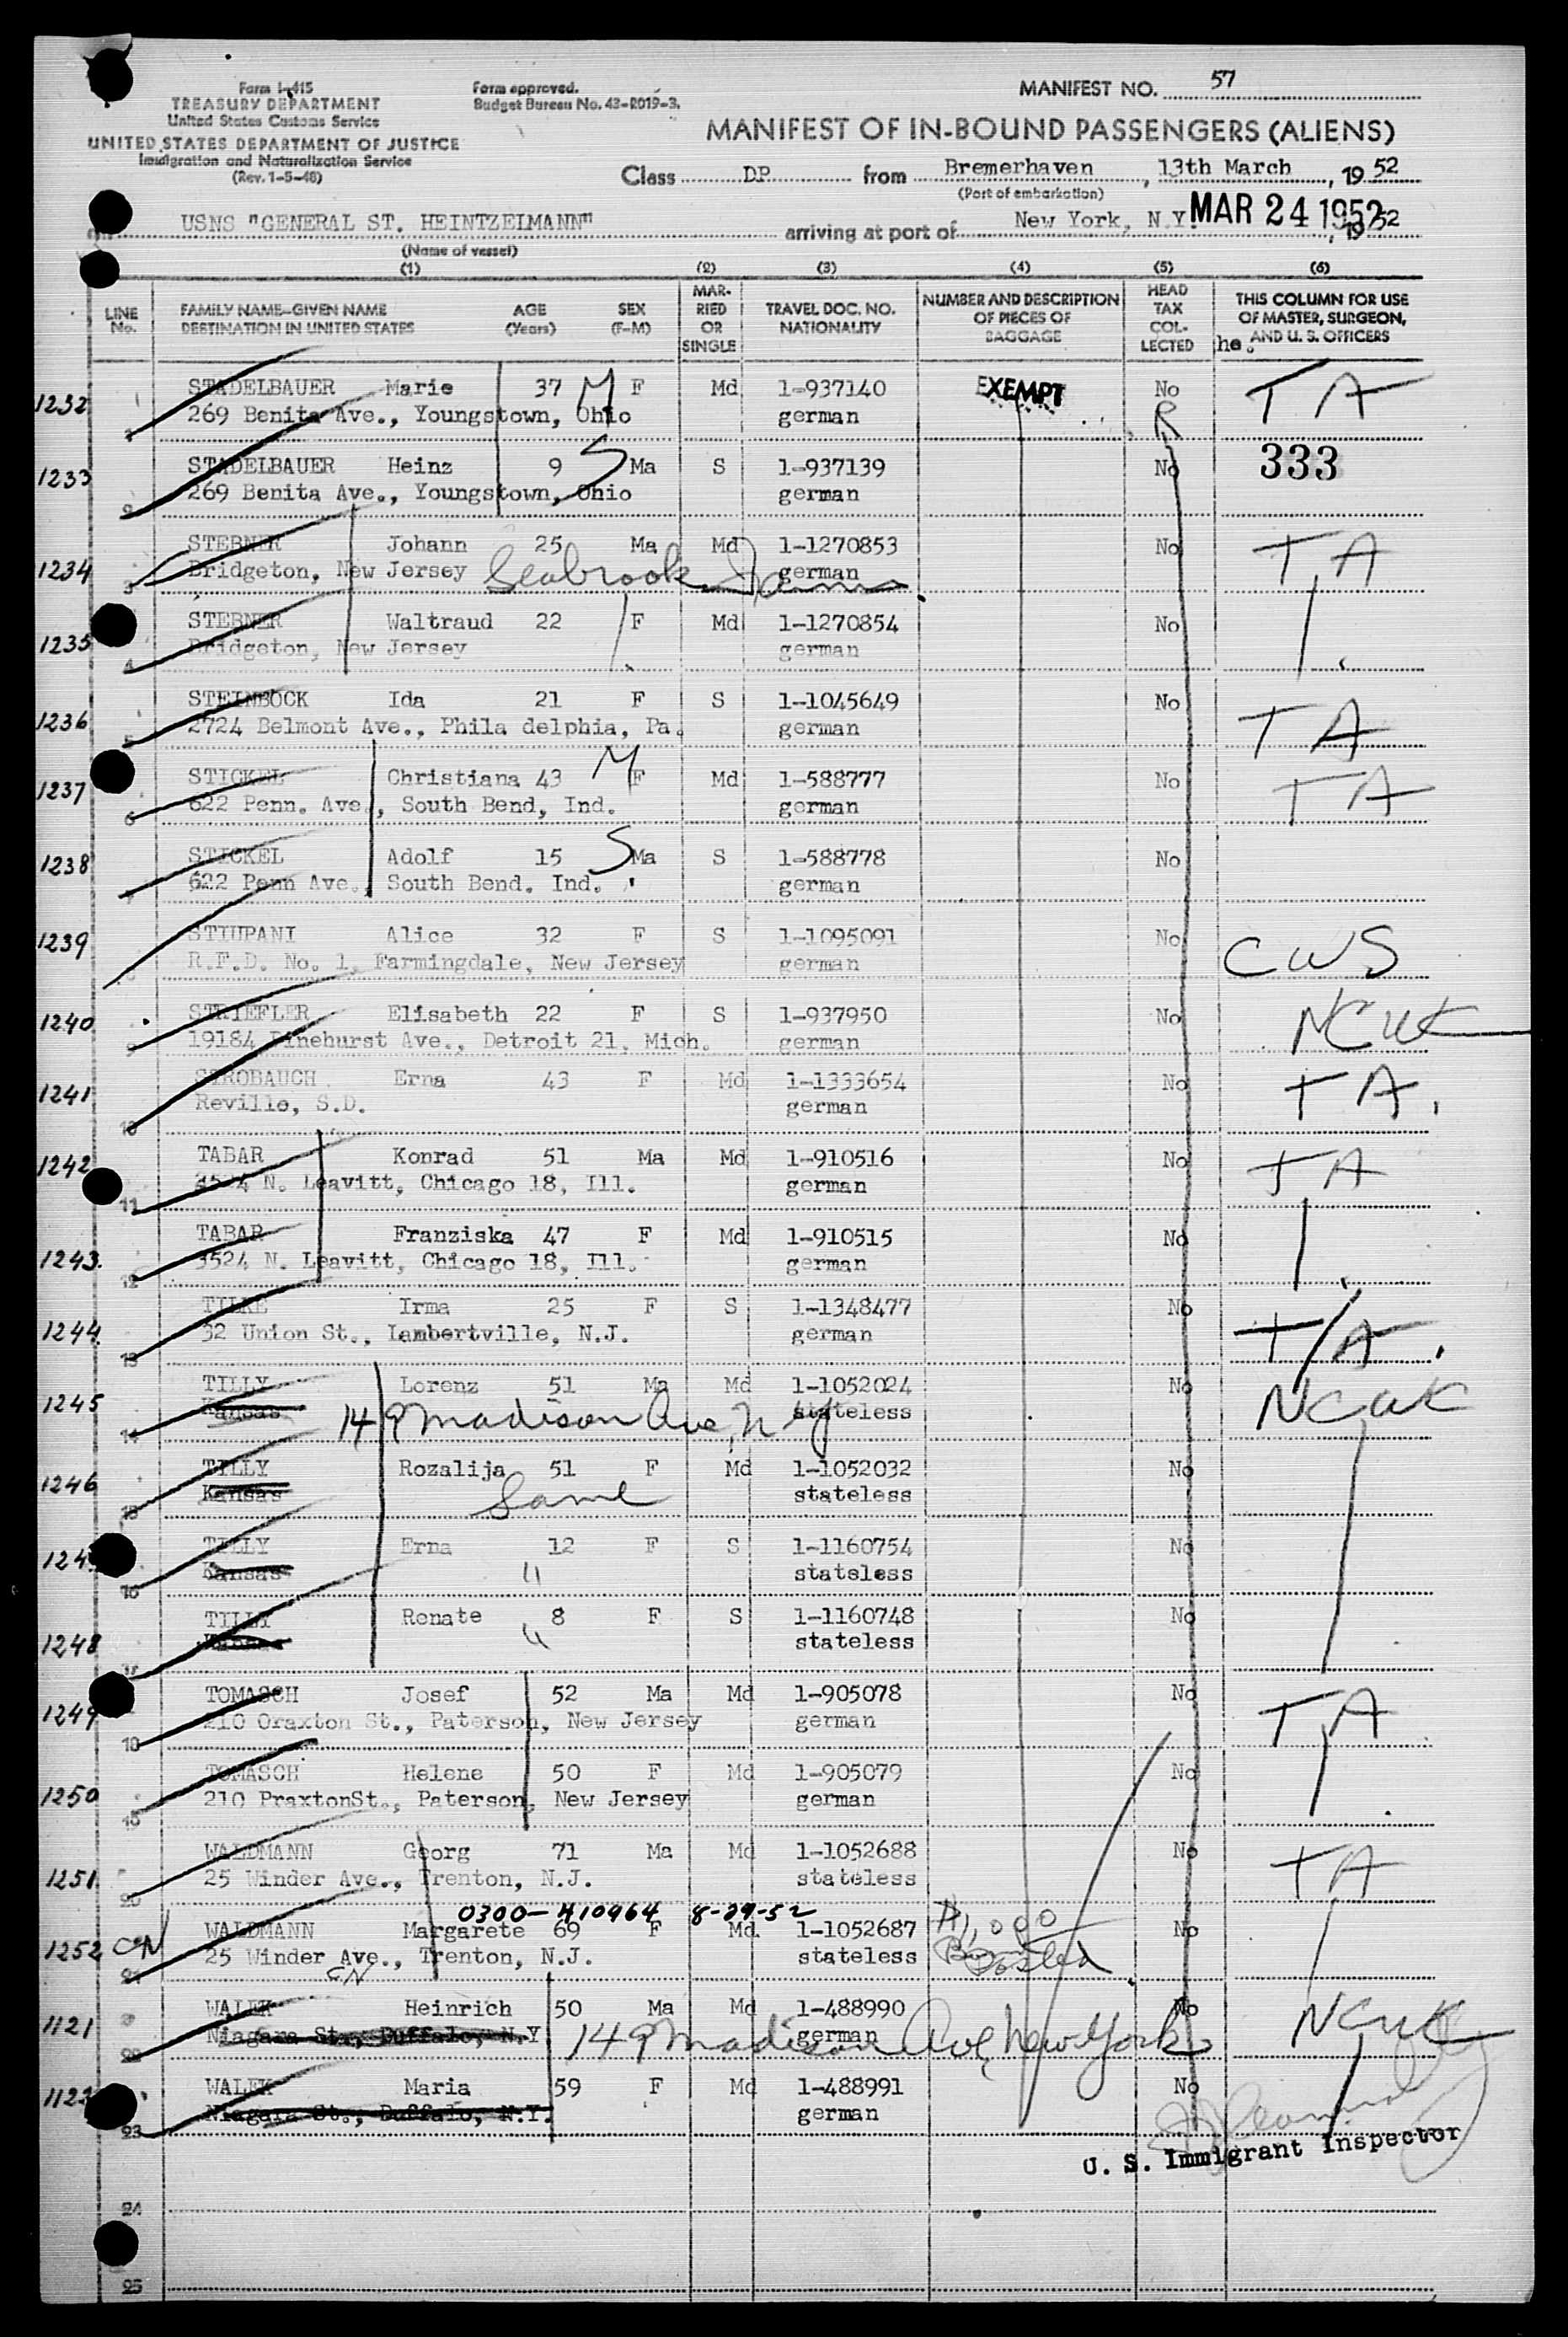 Form I-415
TREASURY DEPARTMENT
United States Customs Service
UNITED STATES DEPARTMENT OF JUSTICE
Immigration and Naturalization Service
(Rev. 1-5-48)
Form approved.
Budget Bureau No. 43-R019-3.
MANIFEST NO. 57
MANIFEST OF IN-BOUND PASSENGERS (ALIENS)
Class DP from Bremerhaven, 13th March, 1952
(Port of embarkation)
USNS "GENERAL ST. HEINTZELMANN" arriving at port of New York, N.Y. MAR 24 1952, 1952
(Name of vessel)
(1) (2) (3) (4) (5) (6)
LINE No. FAMILY NAME-GIVEN NAME DESTINATION IN UNITED STATES AGE (Years) SEX (F-M) MARRIED OR SINGLE TRAVEL DOC. NO. NATIONALITY NUMBER AND DESCRIPTION OF PIECES OF BAGGAGE HEAD TAX COLLECTED THIS COLUMN FOR USE OF MASTER, SURGEON, AND U. S. OFFICERS
he.
1232 1 STADELBAUER Marie 37 M F Md 1-937140 EXEMPT No TA
2 269 Benita Ave., Youngstown, Ohio german R
1233 STADELBAUER Heinz 9 S Ma S 1-937139 No 333
2 269 Benita Ave., Youngstown, Ohio german
1234 STEBNER Johann 25 Ma Md 1-1270853 No TA
3 Bridgeton, New Jersey Seabrook Farms german
1235 STEBNER Waltraud 22 F Md 1-1270854 No
4 Bridgeton, New Jersey german
1236 STEINBOCK Ida 21 F S 1-1045649 No TA
5 2724 Belmont Ave., Phila delphia, Pa. german
1237 STICKEL Christiana 43 M F Md 1-588777 No TA
6 622 Penn. Ave., South Bend, Ind. german
1238 STICKEL Adolf 15 S Ma S 1-588778 No
7 622 Penn Ave., South Bend. Ind. german
1239 STIUPANI Alice 32 F S 1-1095091 No CWS
8 R.F.D. No. 1, Farmingdale, New Jersey german
1240 STRIEFLER Elisabeth 22 F S 1-937950 No NCWC
9 19184 Pinehurst Ave., Detroit 21, Mich. german
1241 STROBAUCH Erna 43 F Md 1-1333654 No TA.
10 Reville, S.D. german
1242 TABAR Konrad 51 Ma Md 1-910516 No TA
11 3524 N. Leavitt, Chicago 18, Ill. german
1243. TABAR Franziska 47 F Md 1-910515 No
12 3524 N. Leavitt, Chicago 18, Ill. german
1244. TILKE Irma 25 F S 1-1348477 No TA.
13 32 Union St., Lambertville, N.J. german
1245 TILLY Lorenz 51 Ma Md 1-1052024 No NCWC
14 Kansas 149 Madison Ave, N Y stateless
1246 TILLY Rozalija 51 F Md 1-1052032 No
15 Kansas Same stateless
124 TILLY Erna 12 F S 1-1160754 No
16 Kansas " stateless
1248 TILLY Renate 8 F S 1-1160748 No
17 Kansas " stateless
1249 TOMASCH Josef 52 Ma Md 1-905078 No TA
18 210 Oraxton St., Paterson, New Jersey german
1250 TOMASCH Helene 50 F Md 1-905079 No
19 210 PraxtonSt., Paterson, New Jersey german
1251. WALDMANN Georg 71 Ma Md 1-1052688 No TA
20 25 Winder Ave., Trenton, N.J. stateless
0300-H10964 8-29-52
1252 CN WALDMANN Margarete 69 F Md. 1-1052687 $1,000 No
21 25 Winder Ave., Trenton, N.J. stateless Bond Posted
CN
1121 WALEK Heinrich 50 Ma Md 1-488990 No NCWC
22 Niagara St., Buffalo, N.Y 149 Madison Ave, New York german
1122 WALEK Maria 59 F Md 1-488991 No
23 Niagara St., Buffalo, N.Y. german
U. S. Immigrant Inspector
24
25